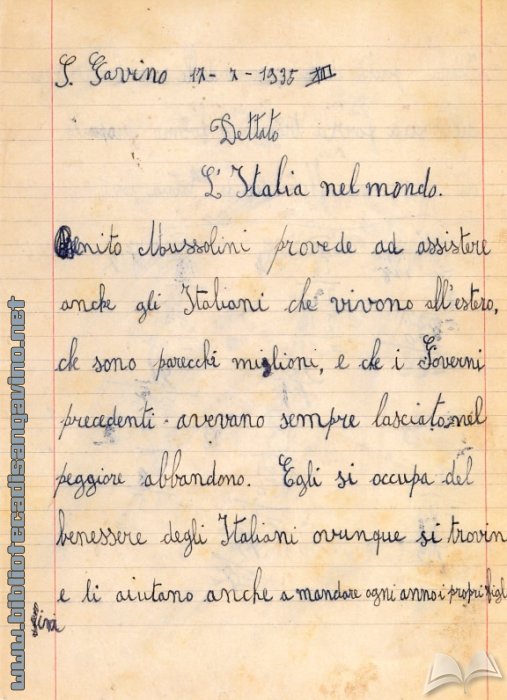 S. Gavino 17-7-1935 XIII
Dettato
L'Italia nel mondo.
Benito Mussolini provede ad assistere
anche gli Italiani che vivono all'estero,
che sono parecchi miglioni, e che i Governi
precedenti avevano sempre lasciato nel
peggiore abbandono. Egli si occupa del
benessere degli Italiani ovunque si trovin
e li aiutano anche a mandare ogni anno i propri figl
www.bibliotecadisangavino.net